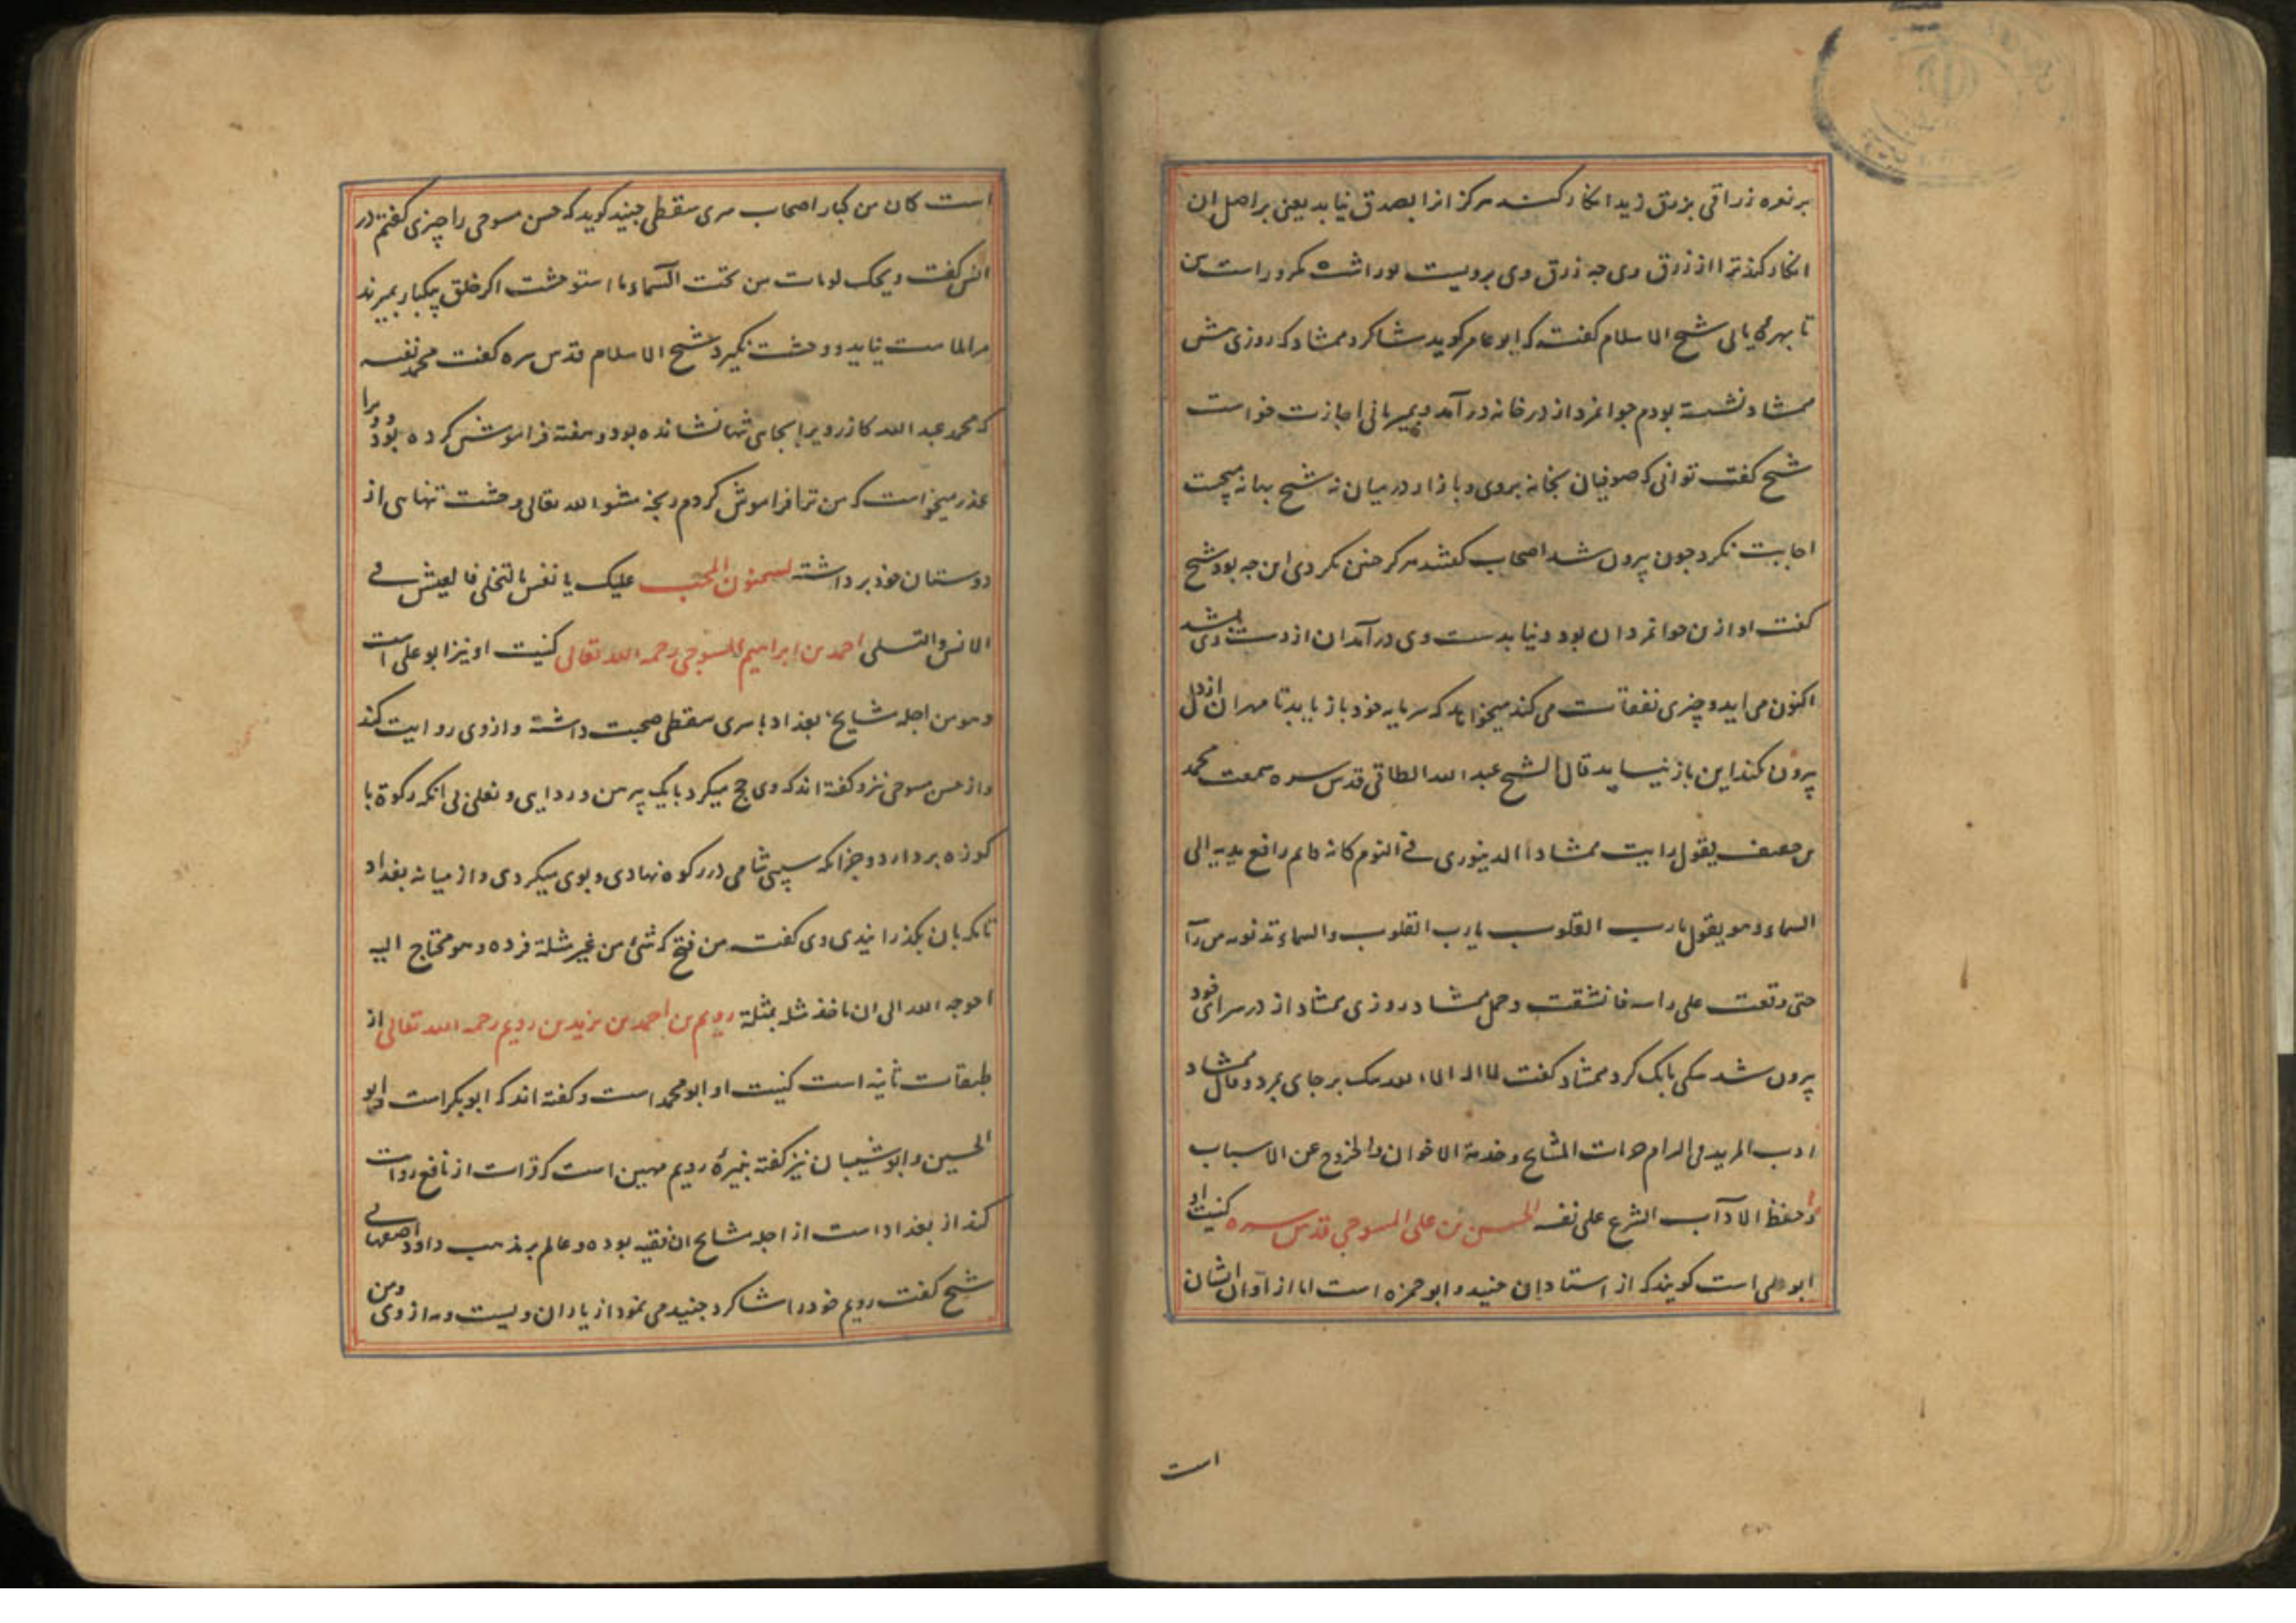 بر نعره زراقی بزرق زید انکار کند هرکز انرا بصدق نیابد یعنی بر اصل ان
انکار کند ترا از زرق وی چه زرق وی برویست
تا بهره یابی شیخ الاسلام کفت که ابو عامر کوید شاکرد ممشاد که روزی پیش
ممشاد نشسته بودم جوانمرد از در خانه در آمد و بمهمانی اجازت خواست
شیخ کفت توانی که صوفیان بخانه بروی و بازار در میان نه شیخ بهانه میجست
اجابت نکرد چون برون شد اصحاب کفتند هرکز چنین نکردی این چه بود شیخ
کفت او ازین جوانمردان بود دنیا بدست وی در آمد ان از دست وی بشد
اکنون می اید و چیزی نفقات می کند میخواهد که سرمایه خود باز یابد تا مهر ان از دل
برون نکند این باز نیابد قال الشیخ عبد الله الطاقی قدس سره سمعت محمد
بن خفیف یقول رایت ممشاد الدینوری فی النوم کانه قایم رافع یدیه الی
السماء و هو یقول یارب القلوب یارب القلوب والسماء تدنو من رآ
حتی وقعت علی راسه فانشقت و حمل ممشاد روزی ممشاد از در سرای خود
برون شد سکی بانک کرد ممشاد کفت لا اله الا الله سک بر جای بمرد و قال ممشاد
ادب المرید فی الزام حرمات المشایخ و خدمة الاخوان والخروج عن الاسباب
و حفظ الاداب الشرع علی نفسه الحسن بن علی المسوحی قدس سره کنیت او
ابو علی است کویند که از استادان جنید و ابو حمزه است اما از اقران ایشان
است
است کان من کبار اصحاب سری سقطی جنید کوید که حسن مسوحی را چیزی کفتم در
انس کفت ویحک لو مات من تحت السماء ما استوحشت اکر خلق بیکبار بمیرند
مرا ملامت نیاید و وحشت نکیرد شیخ الاسلام قدس سره کفت محمد نفسه
که محمد عبد الله کازر ویرا بجایی تنها نشانده بود و هفته فراموش کرده بود و ویرا
عذر میخواست که من ترا فراموش کردم رنجه مشو الله تعالی وحشت تنهایی از
دوستان خود برداشته لسمنون المحب علیک یا نفس بالتخلی فالعیش فی
الانس والتسلی احمد بن ابراهیم المسوحی رحمه الله تعالی کنیت او نیز ابو علی است
و هو من اجله مشایخ بغداد با سری سقطی صحبت داشته و از وی روایت کند
و از حسن مسوحی نیز و کفته اند که وی حج میکرد بایک پیرهن و ردایی و نعلین بی انکه رکوة یا
کوزه بردارد و جز انکه سیبی شامی در رکوه نهادی و بوی میکردی و از میانه بغداد
تا مکه بان بکذرانیدی وی کفت من فتح له شئ من غیر مسئلة فرده و هو محتاج الیه
احوجه الله الی ان یاخذ مثله بمسئلة رویم بن احمد بن یزید بن رویم رحمه الله تعالی از
طبقات ثانیه است کنیت او ابو محمد است و کفته اند که ابو بکر است و ابو
الحسین و ابو شیبان نیز کفته نبیرهٔ رویم مهین است که قرات از نافع روایت
کند از بغداد است از اجله مشایخ ان فقیه بوده و عالم بر مذهب داود اصفهانی
شیخ کفت رویم خود را شاکرد جنید می نمود از یاران ویست و مه از وی و من